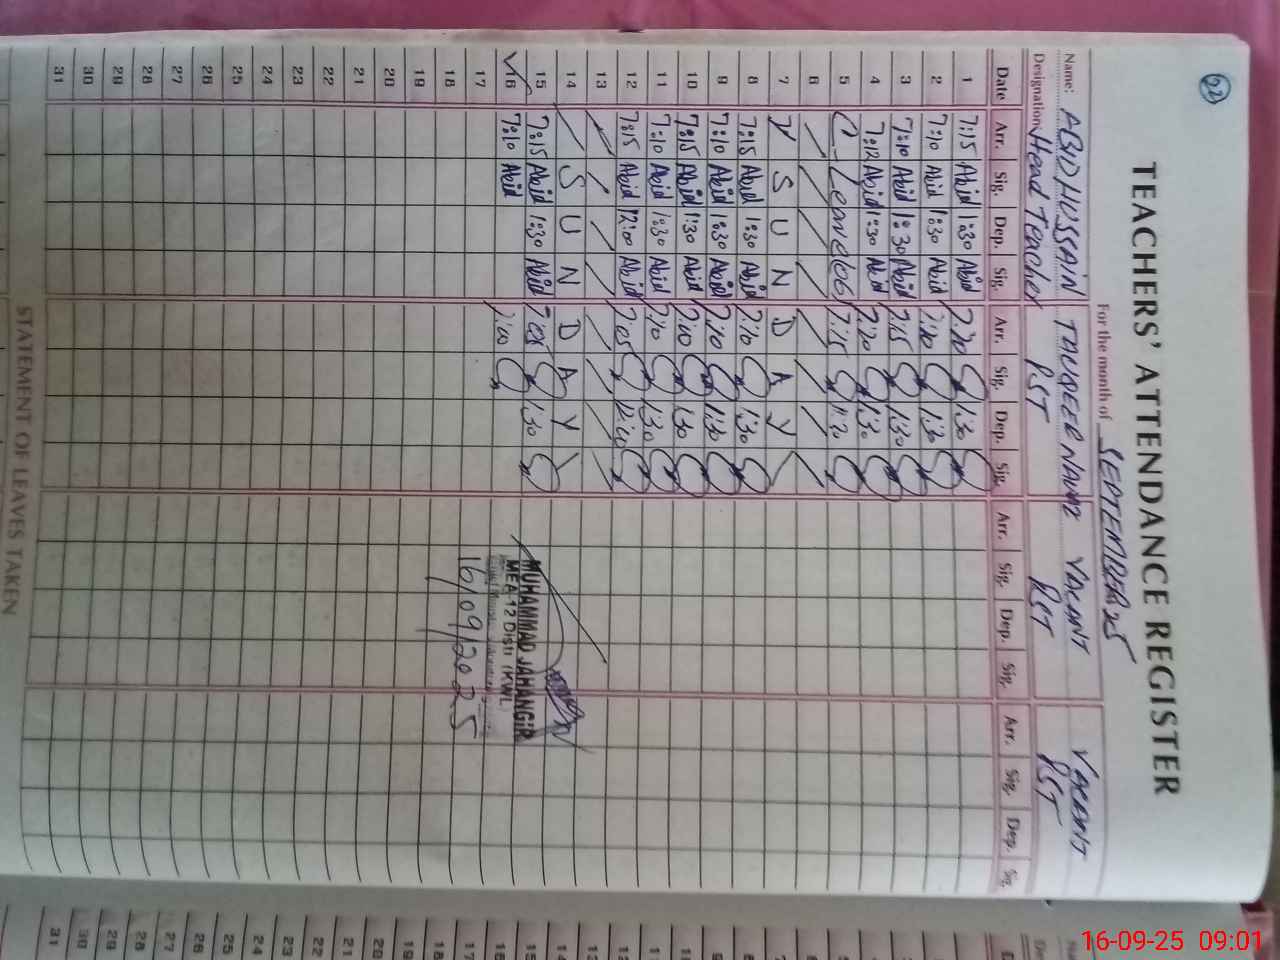 62
TEACHERS' ATTENDANCE REGISTER
For the month of SEPTEMBER 25
Name: ABID HUSSAIN TAUQEER NAWAZ VACANT VACANT
Designation: Head Teacher PST PST PST
Date Arr. Sig. Dep. Sig. Arr. Sig. Dep. Sig. Arr. Sig. Dep. Sig. Arr. Sig. Dep. Sig.
1 7:15 Abid 1:30 Abid 7:20 1:30
2 7:10 Abid 1:30 Abid 7:20 1:30
3 7:10 Abid 1:30 Abid 7:15 1:30
4 7:12 Abid 1:30 Abid 7:20 1:30
5 C-Leave 7:15
6
7 S U N D A Y
8 7:15 Abid 1:30 Abid 7:10 1:30
9 7:10 Abid 1:30 Abid 7:10 1:30
10 7:15 Abid 1:30 Abid 7:00 1:30
11 7:10 Abid 1:30 Abid 7:10 1:30
12 7:15 Abid 12:00 Abid 7:05 12:00
13
14 S U N D A Y
15 7:15 Abid 1:30 Abid 7:05 1:30
16 7:10 Abid 7:00
17
18
19
20
21
22
23
24
25
26
27
28
29
30
31
MUHAMMAD JAHANGIR
MEA-12 Distt (KWL)
16/09/2025
STATEMENT OF LEAVES TAKEN
16-09-25 09:01